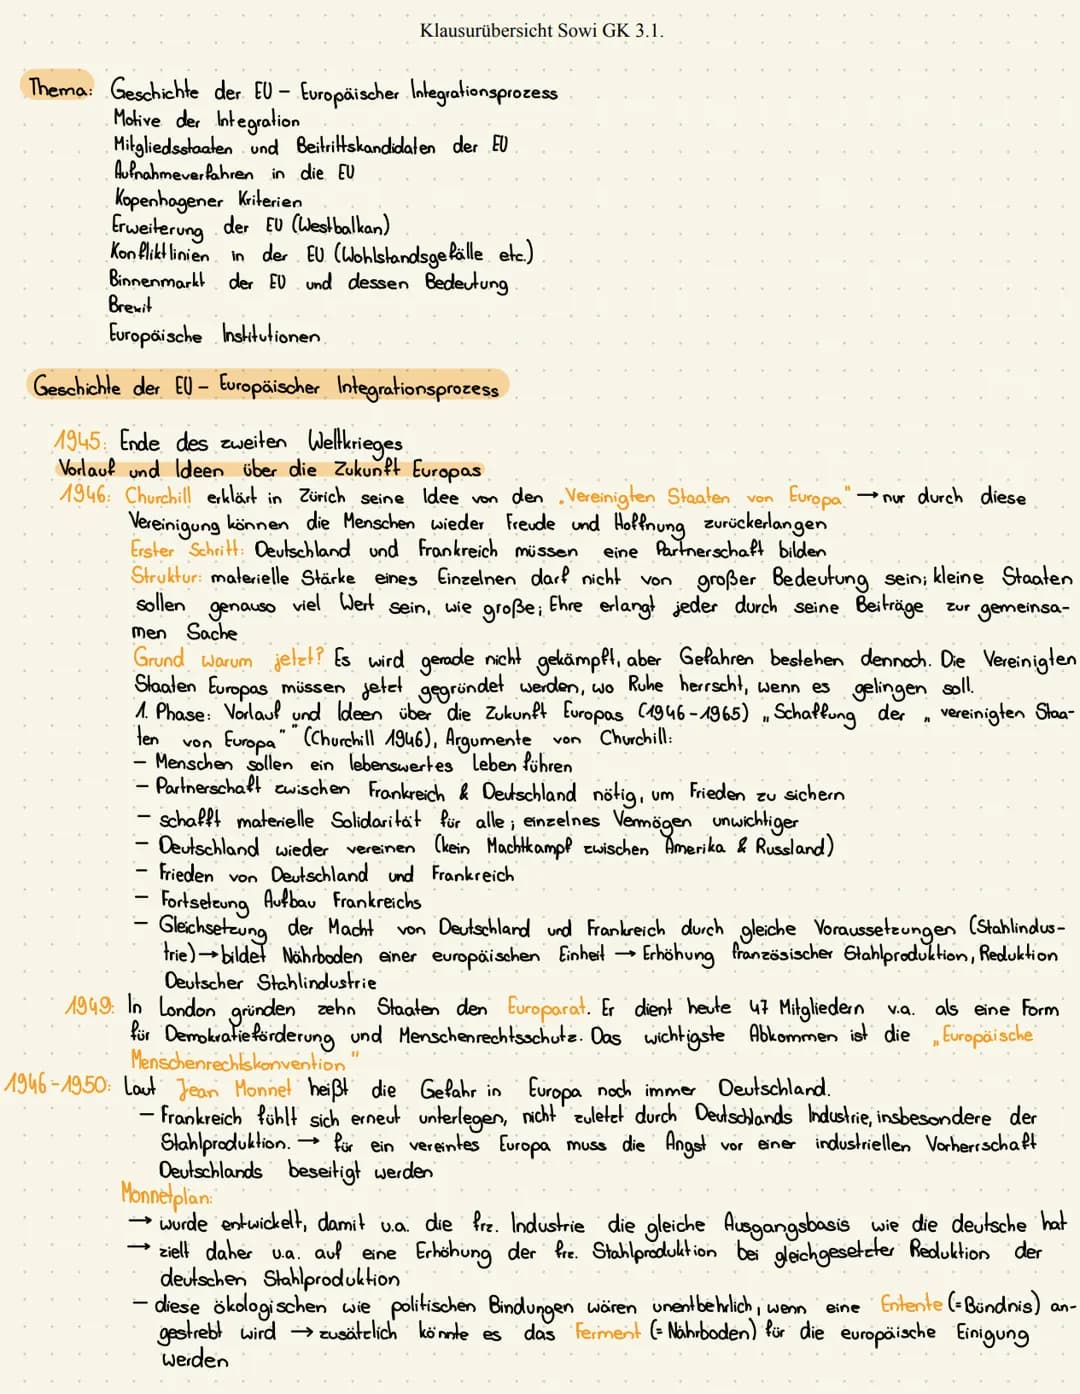 Klausurübersicht Sowi GK 3.1.
Thema: Geschichte der EU – Europäischer Integrationsprozess
Motive der Integration
Mitgliedsstaaten und Beitrittskandidaten der EU
Aufnahmeverfahren in die EU
Kopenhagener Kriterien
Erweiterung der EU (Westbalkan)
Konfliktlinien in der EU (Wohlstandsgefälle etc.)
Binnenmarkt der EU und dessen Bedeutung
Brexit
Europäische Institutionen
Geschichte der EU – Europäischer Integrationsprozess
1945: Ende des zweiten Weltkrieges
Vorlauf und Ideen über die Zukunft Europas
1946: Churchill erklärt in Zürich seine Idee von den „Vereinigten Staaten von Europa" → nur durch diese
Vereinigung können die Menschen wieder Freude und Hoffnung zurückerlangen
Erster Schritt: Deutschland und Frankreich müssen eine Partnerschaft bilden
Struktur: materielle Stärke eines Einzelnen darf nicht von großer Bedeutung sein; kleine Staaten
sollen genauso viel Wert sein, wie große; Ehre erlangt jeder durch seine Beiträge zur gemeinsa-
men Sache
Grund warum jetzt? Es wird gerade nicht gekämpft, aber Gefahren bestehen dennoch. Die Vereinigten
Staaten Europas müssen jetzt gegründet werden, wo Ruhe herrscht, wenn es gelingen soll.
1. Phase: Vorlauf und Ideen über die Zukunft Europas (1946-1965) „Schaffung der „vereinigten Staa-
ten von Europa"" (Churchill 1946), Argumente von Churchill:
– Menschen sollen ein lebenswertes Leben führen
– Partnerschaft zwischen Frankreich & Deutschland nötig, um Frieden zu sichern
– schafft materielle Solidarität für alle; einzelnes Vermögen unwichtiger
– Deutschland wieder vereinen (kein Machtkampf zwischen Amerika & Russland)
– Frieden von Deutschland und Frankreich
– Fortsetzung Aufbau Frankreichs
– Gleichsetzung der Macht von Deutschland und Frankreich durch gleiche Voraussetzungen (Stahlindus-
trie) → bildet Nährboden einer europäischen Einheit → Erhöhung französischer Stahlproduktion, Reduktion
Deutscher Stahlindustrie
1949: In London gründen zehn Staaten den Europarat. Er dient heute 47 Mitgliedern v.a. als eine Form
für Demokratieförderung und Menschenrechtsschutz. Das wichtigste Abkommen ist die „Europäische
Menschenrechtskonvention"
1946-1950: Laut Jean Monnet heißt die Gefahr in Europa noch immer Deutschland.
– Frankreich fühlt sich erneut unterlegen, nicht zuletzt durch Deutschlands Industrie, insbesondere der
Stahlproduktion. → für ein vereintes Europa muss die Angst vor einer industriellen Vorherrschaft
Deutschlands beseitigt werden
Monnetplan:
→ wurde entwickelt, damit u.a. die frz. Industrie die gleiche Ausgangsbasis wie die deutsche hat
→ zielt daher u.a. auf eine Erhöhung der frz. Stahlproduktion bei gleichgesetzter Reduktion der
deutschen Stahlproduktion
– diese ökologischen wie politischen Bindungen wären unentbehrlich, wenn eine Entente (=Bündnis) an-
gestrebt wird → zusätzlich könnte es das Ferment (= Nährboden) für die europäische Einigung
werden